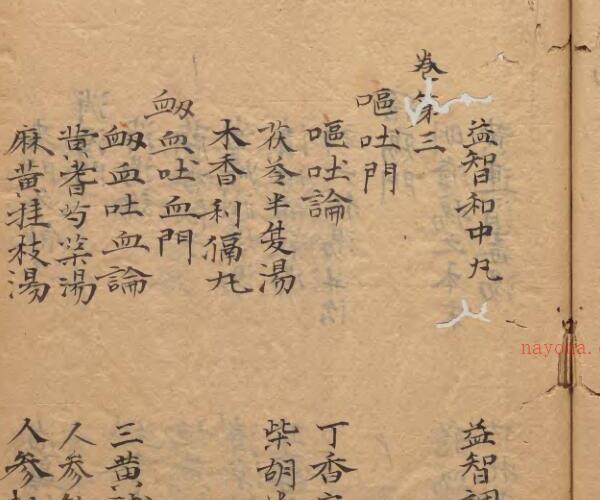 益智和中丸
益智
卷第三
嘔吐門
嘔吐論
丁香
茯苓半隻湯
柴胡
木香利膈丸
衂血吐血門
衂血吐血論
三黃
黃耆芍藥湯
人參
麻黃桂枝湯
人參
nayona.